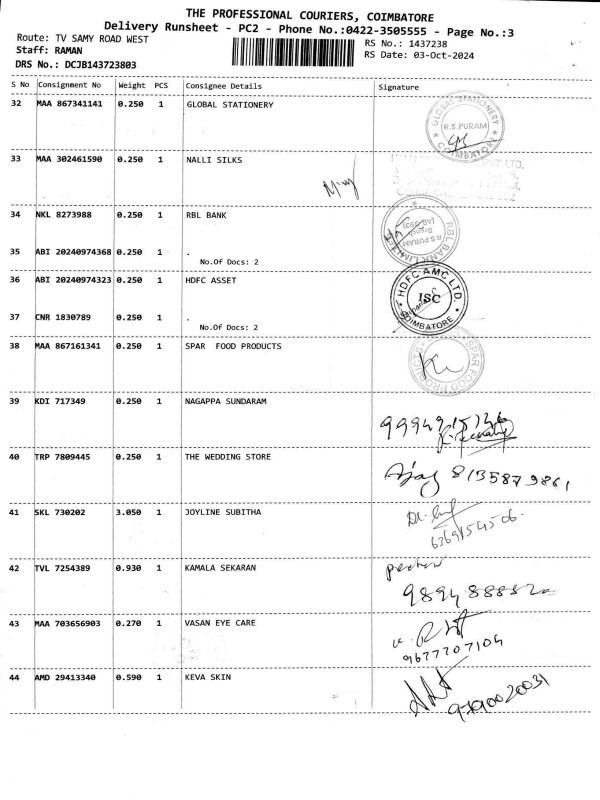 THE PROFESSIONAL COURIERS, COIMBATORE
Delivery Runsheet - PC2 - Phone No.:0422-3505555 - Page No.:3
Route: TV SAMY ROAD WEST
RS No.: 1437238
Staff: RAMAN
RS Date: 03-Oct-2024
DRS No.: DCJB143723803
S No Consignment No Weight PCS Consignee Details Signature
32 MAA 867341141 0.250 1 GLOBAL STATIONERY
GLOBAL STATIONERY
R.S.PURAM
COIMBATORE
33 MAA 302461590 0.250 1 NALLI SILKS
34 NKL 8273988 0.250 1 RBL BANK
RBL BANK LIMITED
R.S PURAM
Branch
35 ABI 20240974368 0.250 1 .
No.Of Docs: 2
36 ABI 20240974323 0.250 1 HDFC ASSET
HDFC AMC LTD.
ISC
COIMBATORE
37 CNR 1830789 0.250 1 .
No.Of Docs: 2
38 MAA 867161341 0.250 1 SPAR FOOD PRODUCTS
SPAR FOOD PRODUCTS
39 KDI 717349 0.250 1 NAGAPPA SUNDARAM
40 TRP 7809445 0.250 1 THE WEDDING STORE
Ajay 8135879861
41 SKL 730202 3.050 1 JOYLINE SUBITHA
6369154506
42 TVL 7254389 0.930 1 KAMALA SEKARAN
43 MAA 703656903 0.270 1 VASAN EYE CARE
9677707104
44 AMD 29413340 0.590 1 KEVA SKIN